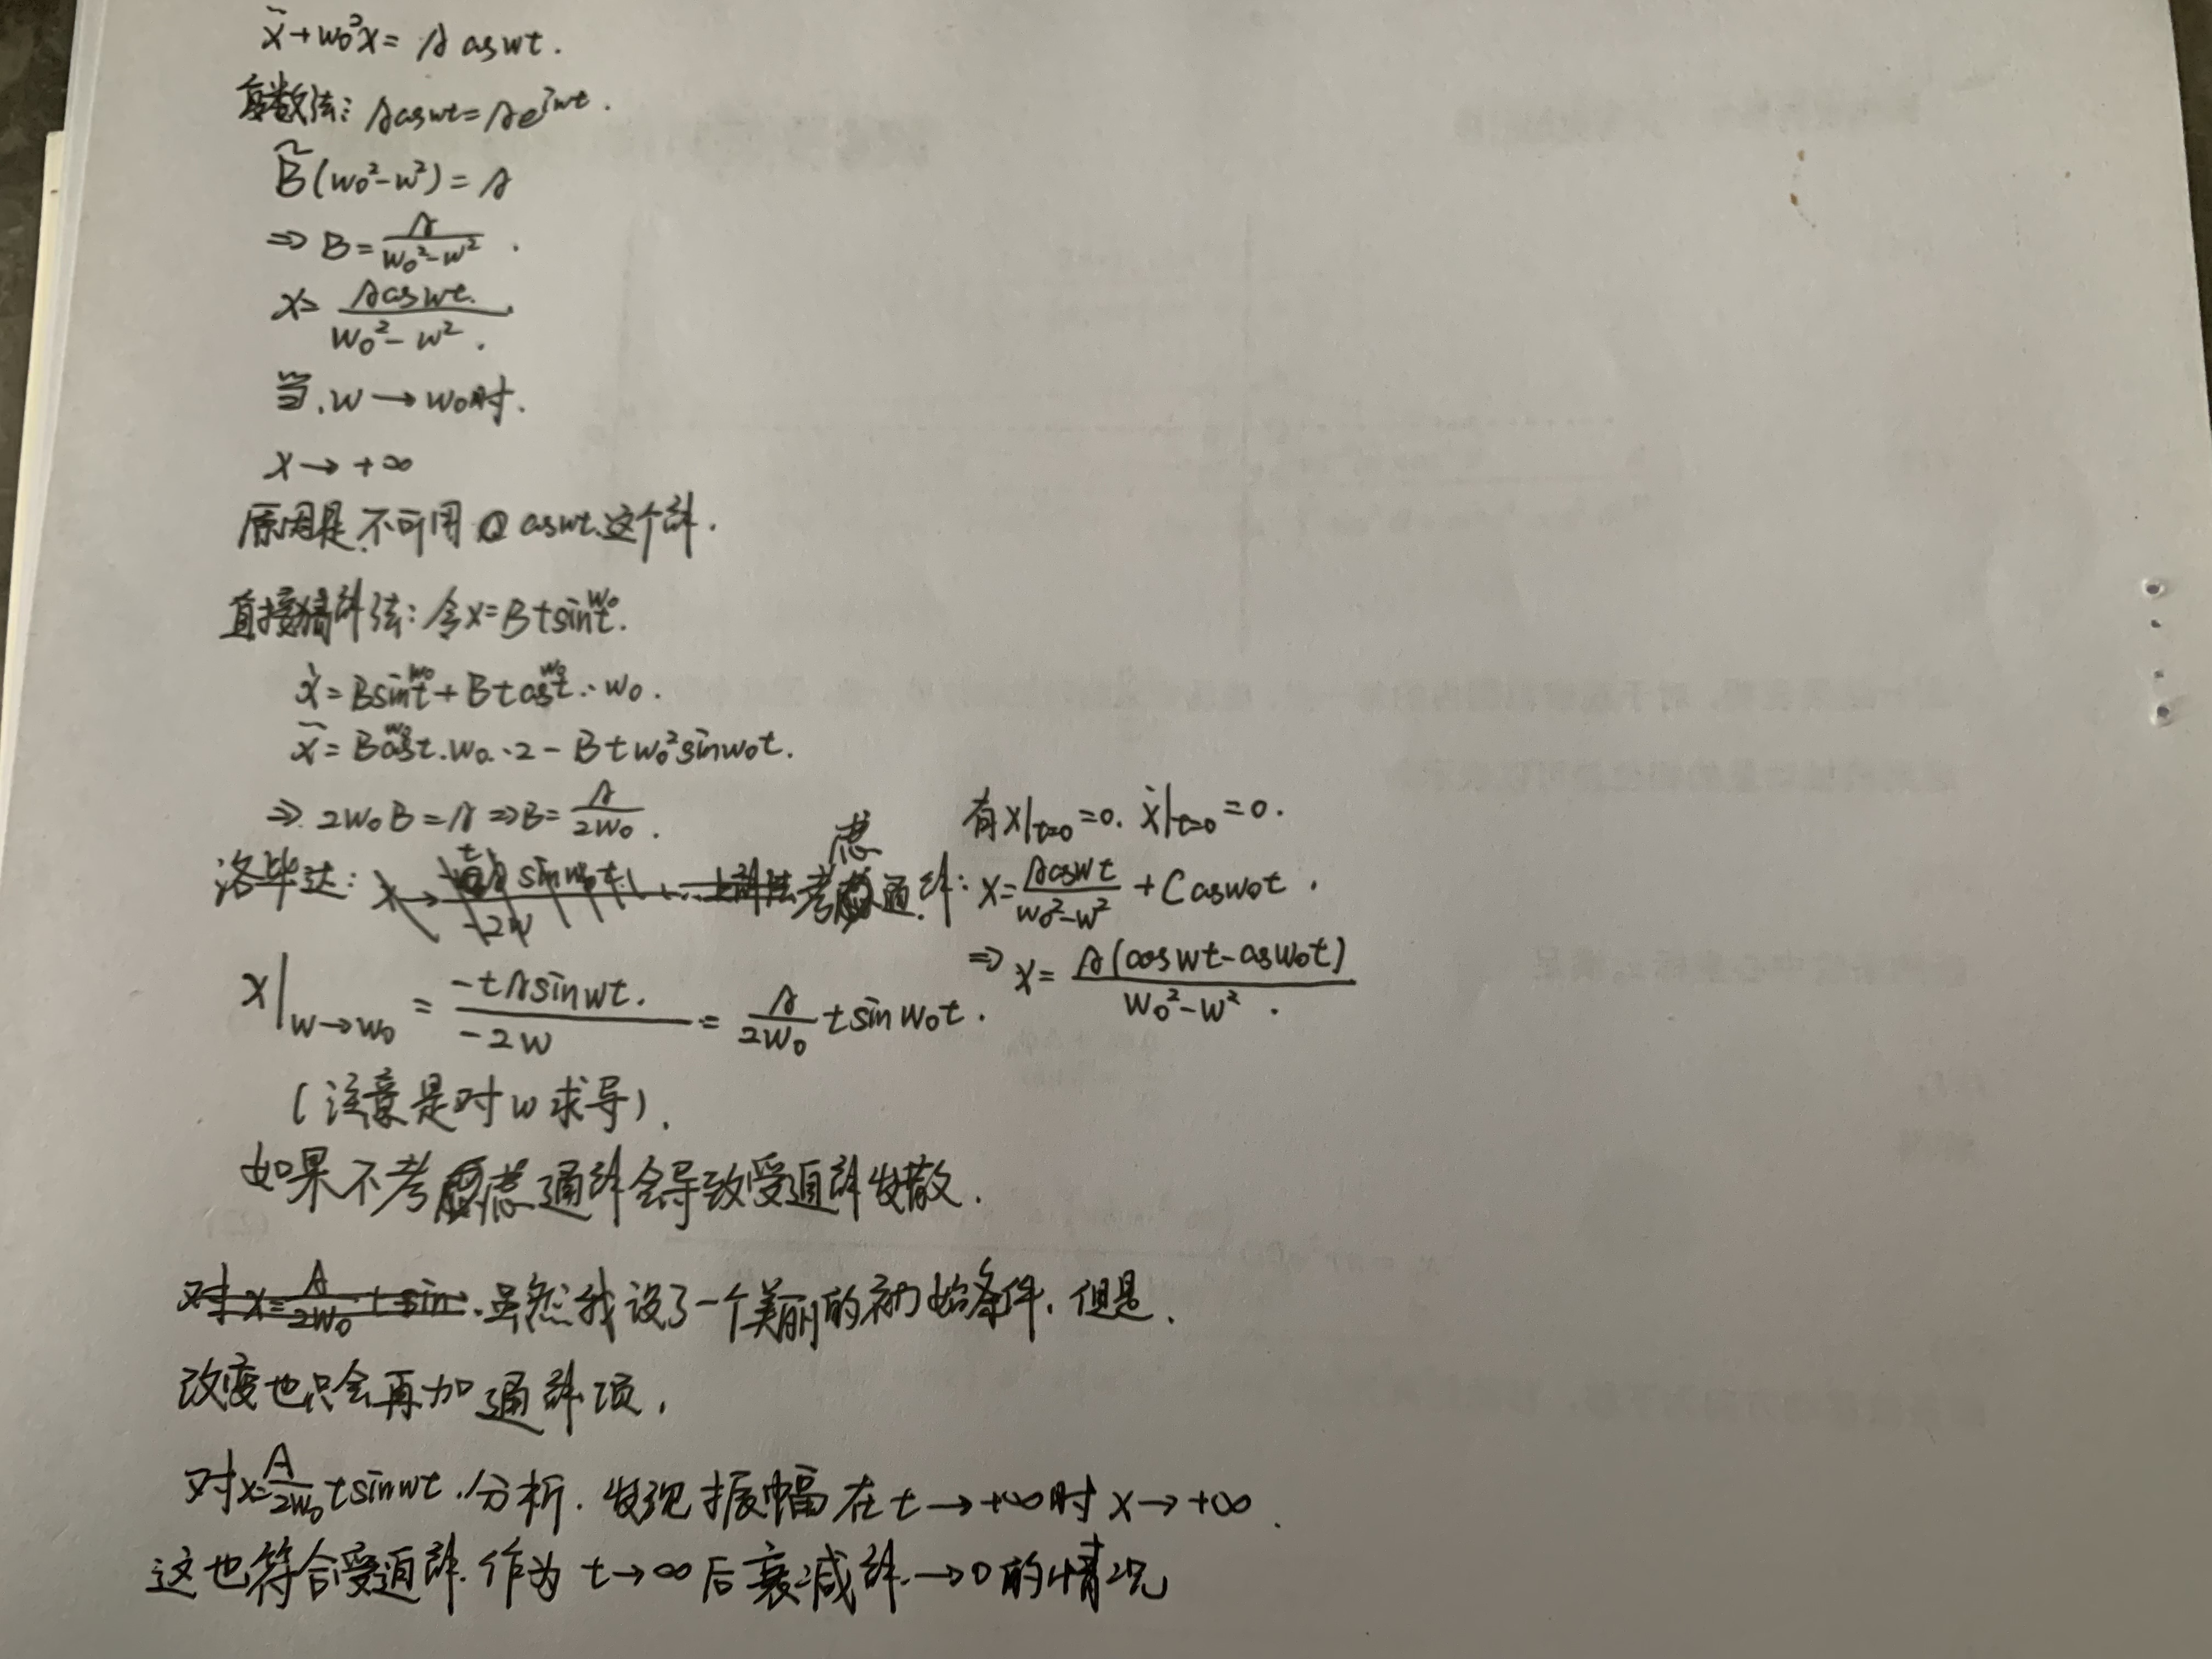 ẍ+w₀²x = A cos wt.
复数法: A cos wt = A e^{iwt}.
B̃(w₀²-w²) = A
⇒ B = A/(w₀²-w²).
x = A cos wt./(w₀²-w²).
当.w → w₀时.
x → +∞
原因是.不可用 Q cos wt.这个解.
直接猜解法: 令x = B t sin w₀t.
ẋ = B sin w₀t + B t cos w₀t · w₀.
ẍ = B cos w₀t.w₀.·2 - B t w₀² sin w₀t.
⇒ 2w₀B = A ⇒ B = A/(2w₀).
有x|t=0 = 0. ẋ|t=0 = 0.
洛毕达: 考虑通解: x = A cos wt/(w₀²-w²) + C cos w₀t.
⇒ x = A(cos wt - cos w₀t)/(w₀²-w²).
x|w→w₀ = -tA sin wt./(-2w) = A/(2w₀) t sin w₀t.
(注意是对w求导).
如果不考虑通解会导致受迫解发散.
对x=A/(2w₀) t sin.虽然我设了一个美丽的初始条件.但是.
改变也只会再加通解项.
对x=A/(2w₀) t sin wt.分析.发现振幅在t→+∞时x→+∞.
这也符合受迫解.作为t→∞后衰减解.→0的情况